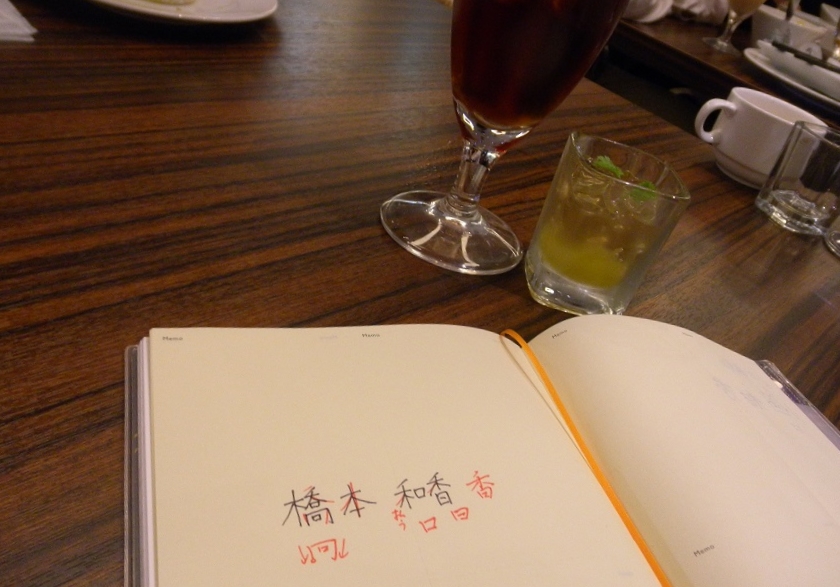 Memo Memo Memo
橋本 和香 香
口 回
Memo